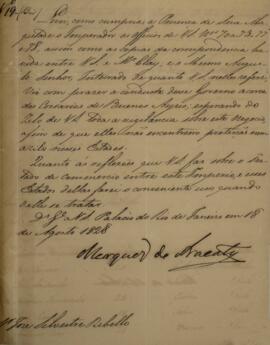 Levei, como cumpria, á Presença de Sua Ma-
gestade o Imperador os officios de VS Nos 70 a 73, 77
e 78, assim como as copias da correspondencia ha-
vida entre VS e Mr Clay, e o Mesmo Augus-
to Senhor, Inteirado de quanto VS nelles refere
Vio com prazer a conducta desse Governo acerca
dos Corsarios de Buenos Ayres, esperando do
zelo de VS toda a vigilancia sobre este Negocio
afim de que elles não encontrem protecção nem
azilo nesses Estados.
Quanto ás reflexões que VS faz sobre o Tra-
tado de Commercio entre este Imperio, e esses
Estados dellas farei o conveniente uso quando
delle se tratar.
Ds Ge a VS Palacio do Rio de Janeiro em 18
de Agosto 1828
Marquez de Aracaty
Sr José Silvestre Rebello